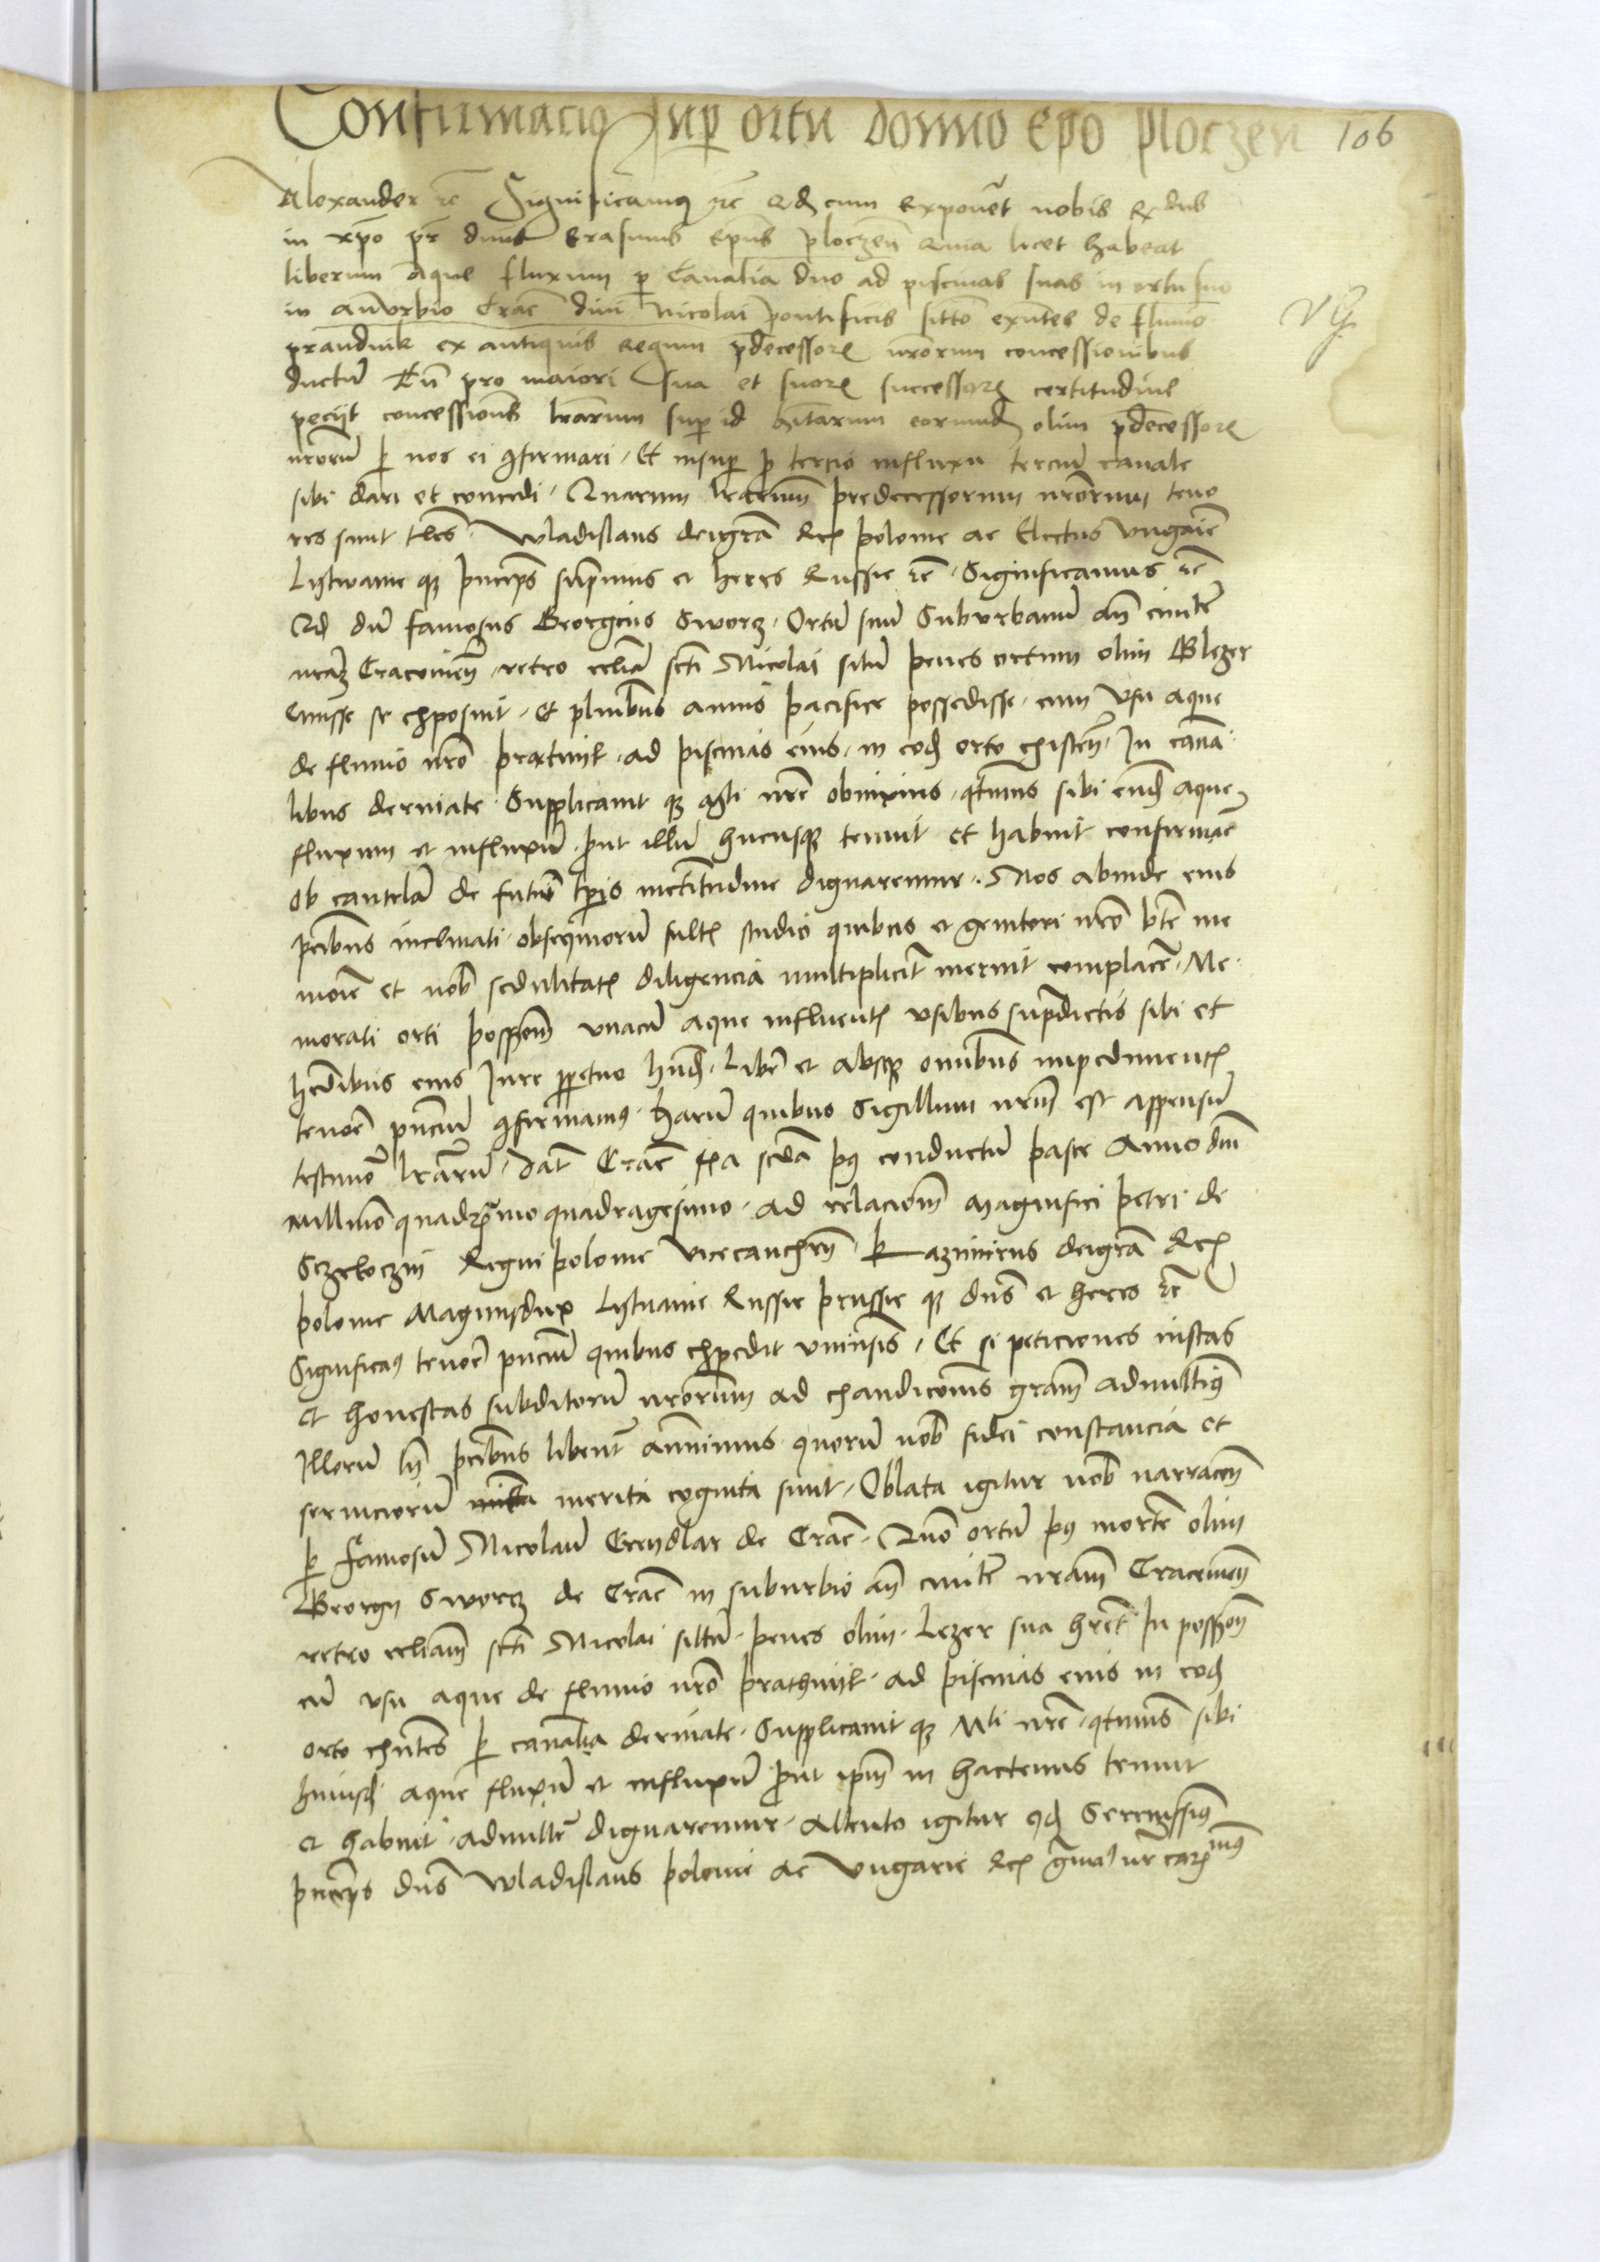 Confirmacio sup ortu domno Epo ploczen 106
Alexander rc Significamus rc Qd cum exponet nobis Rdus
in xpo pr dnus Erasmus Epus ploczen Quia licet habeat
liberum aque fluxum p Canalia duo ad piscinas suas in ortu suo
in suburbio Crac divi Nicolai pontificis sitto exntes de fluvio
prandnik ex antiquis Regum pdecessor nrorum concessionibus
ductum Tn pro maiori sua et suor successor certitudine
peciit concessionis lrarum sup id hitarum eorundem olim pdecessor
nroru p nos ei cfirmari Et insup p tercio influxu terciu canale
sibi dari et concedi Quarum lrarum predecessorum nrorum teno
res sunt tles Wladislaus deigra Rex polonie ac Electus Vngarie
Lytwanie qz princeps supmus et heres Russie rc Significamus rc
Qd du famosus Georgius Sworcz Ortu suu Suburbanu an civite
nram Cracovien retro eccliam scti Nicolai situ penes ortum olim Glezer
Emisse se exposuit Et pluribus annis pacifice possedisse cum vsu aque
de fluvio nro ad piscinas eius in eod orto existen In cana
libus deriuate Supplicavit qz mti nre obnixius qtenus sibi eund aque
fluxum et influxu put illu hucusqz tenuit et habuit confirmare
ob cautela de future tpis incertitudine dignaremur Nos abinde eius
pcibus inclinati obsequioru fult studio quibus et genitori nro bte me
morie et nob sedulitat diligencia multiplicit meruit complacere Me
morati orti possessionem vnacu aque influent vsibus supradictis sibi et
hedibus eius Jure ppetuo hnd Libe et absqz omibus impediment
tenore pnciu cfirmamus haru quibus Sigillum nrum est appensu
testimo lraru Dat Crac fia scda conductu pasce Anno dni
Millimo quadrmo quadragesimo Ad relacionem Magnifici petri de
Sczekoczin Regni polonie vicecancellrii Kazimirus deigra Rex
polonie Magnusdux Lytuanie Russie prussie qz dns et heres rc
Significamus tenore pnciu quibus expedit vniversis Et si peticiones iustas
et honestas subditoru nrorum ad exaudicionis gram admittimus
Illoru tn pcibus libent annuimus quoru nob fidei constancia et
serviciorum merita cognita sunt Oblata igitur nob narracione
p famosu Nicolau de Crac Quo ortu post morte olim
Georgii Sworcz de Crac in suburbio an civite nram Cracovien
retro eccliam scti Nicolai situ penes olim Lezer sua hret In possession
cu vsu aque de fluvio nro ad piscinas eius in eod
orto exntes p canalia deriuate Supplicavit qz Mti nre qtenus sibi
huiusd aque fluxu et influxu put ipm in hactenus tenuit
et habuit admittere dignaremur Attento igitur qd Serenissimus
princeps dns Wladislaus polonie ac Vngarie Rex